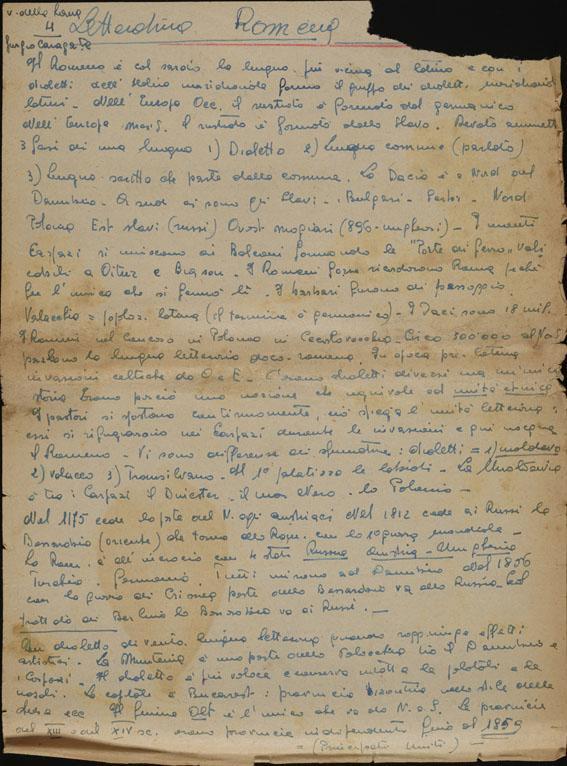 v. della Roma
4 Letteratura Romena
Il Romeno è col sardo la lingua più vicina al latino e con i
dialetti dell'Italia meridionale forma il gruppo dei dialetti meridionali
latini - Nell'Europa Occ. il sustrato è formato dal germanico
Nell'Europa il sustrato è formato dallo slavo.
3 fasi di una lingua 1) Dialetto 2) lingua comune (parlata)
3) lingua scritta che parte dalla comune. La Dacia è a Nord del
Danubio - A sud ci sono gli slavi - i Bulgari - Nord
Polonia Est slavi (russi) Ovest magiari (896 - ungheresi) - I monti
Carpazi si uniscono ai Balcani formando le "Porte di ferro"
a Oituz e - I Romani forse ricordarono Roma perché
fu l'unico che si fermò lì. I barbari furono di passaggio
Valacchia = popolaz. latina (il termine è germanico) - I Daci sono 18 mil.
I Rumeni nel Caucaso in Polonia in Cecoslovacchia - Circa 300'000 al
parlano la lingua letteraria daco-romena. In epoca pre-latina
invasioni celtiche da O e E - C'erano dialetti diversi ma un'unica
storia erano perciò una nazione che equivale ad unità etnica
I pastori si spostano continuamente, ciò spiega l'unità letteraria:
essi si rifugiarono nei Carpazi durante le invasioni e qui nacque
il Romeno - Vi sono differenze di sfumature: dialetti = 1) moldavo
2) valacco 3) Transilvano - Il 1° palatizza le labiali - La Moldavia
è tra i Carpazi il Dniester - il mar Nero - la Polonia -
Nel 1175 cede la parte del N. agli austriaci Nel 1812 cede ai Russi la
Bessarabia (oriente) che torna alla Rom. con la guerra mondiale -
La Rom. è all'incrocio con 4 stati Russia Austria - Ungheria
Turchia - Germania. Tutti mirano al Danubio dal 1856
con la guerra di Crimea parte della Bessarabia va alla Russia - Col
trattato di Berlino la Bessarabia va ai Russi. -
Un dialetto diventa lingua letteraria quando raggiunge effetti
artistici. La Muntenia è una parte della Valacchia tra il Danubio e
i Carpazi - Il dialetto è più veloce e conserva intatte le palatali e le
nasali. La capitale è Bucarest: provincia bizantina nello stile delle
chiese ecc. Il fiume Olt è l'unico che va da N. a S. Le provincie
del XIII e del XIV sc. erano provincie indipendenti fino al 1859
= (Principati Uniti) -